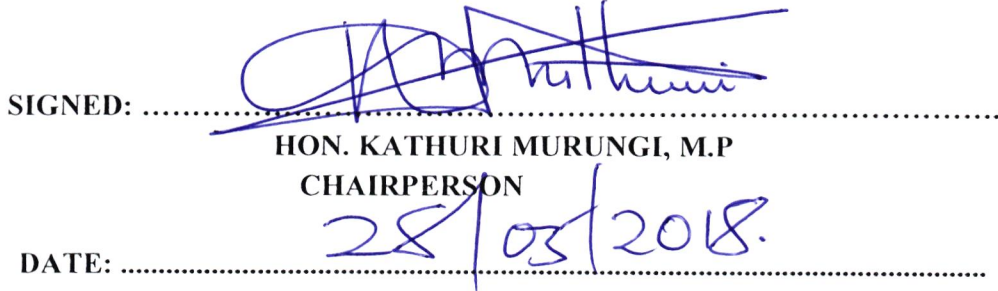 SIGNED: ................................................................
HON. KATHURI MURUNGI, M.P
CHAIRPERSON
DATE: 28/03/2018.